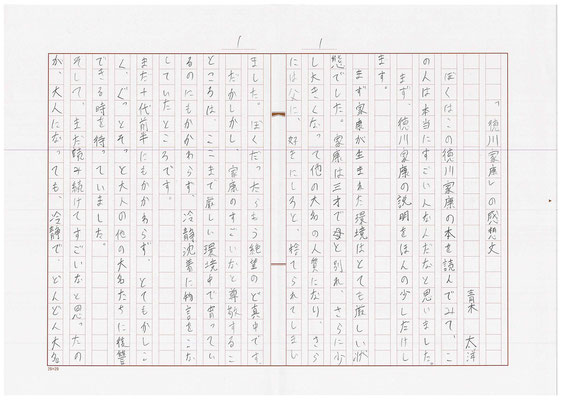 「徳川家康」の感想文
青木 太洋
ぼくはこの徳川家康の本を読んでみて、こ
の人は本当にすごい人なんだなと思いました。
まず、徳川家康の説明をほんの少しだけし
ます。
まず家康が生まれた環境はとても厳しい状
態でした。家康は三才で母と別れ、さらに少
し大きくなって他の大名の人質になり、さら
には父に、好きにしろと、捨てられてしまい
ました。ぼくだったらもう絶望のど真中です。
だがしかし、家康のすごいなと尊敬するこ
ところは、ここまで厳しい環境中で育ってい
るのにもかかわらず、冷静沈着に物事をこな
していたところです。
まだ十代前半にもかかわらず、とてもかしこ
く、ぐっとそっと大人の他の大名たちに復讐
できる時を待っていました。
そして、まだ読み続けてすごいなと思ったの
が、大人になっても、冷静で、どんどん大名
1
1
20×20